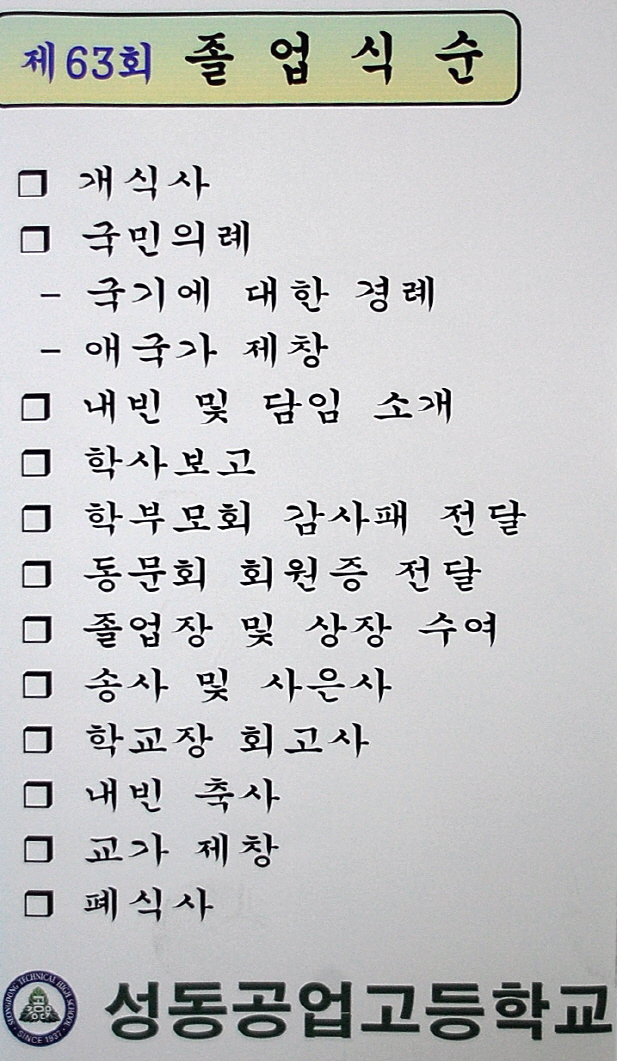 제63회 졸업식순
❐ 개식사
❐ 국민의례
- 국기에 대한 경례
- 애국가 제창
❐ 내빈 및 담임 소개
❐ 학사보고
❐ 학부모회 감사패 전달
❐ 동문회 회원증 전달
❐ 졸업장 및 상장 수여
❐ 송사 및 사은사
❐ 학교장 회고사
❐ 내빈 축사
❐ 교가 제창
❐ 폐식사
SEONGDONG TECHNICAL HIGH SCHOOL
SINCE 1937
성동공업고등학교